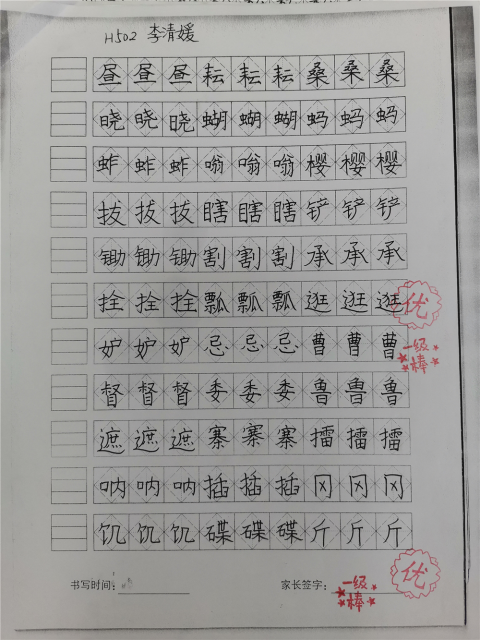 H502 李清媛
昼昼昼耘耘耘桑桑桑
晓晓晓蝴蝴蝴蚂蚂蚂
蚱蚱蚱嗡嗡嗡樱樱樱
拔拔拔瞎瞎瞎铲铲铲
锄锄锄割割割承承承
拴拴拴瓢瓢瓢逛逛逛
优
妒妒妒忌忌忌曹曹曹
一级棒
督督督委委委鲁鲁鲁
遮遮遮寨寨寨擂擂擂
呐呐呐插插插冈冈冈
饥饥饥碟碟碟斤斤斤
书写时间:
家长签字:
一级棒
优